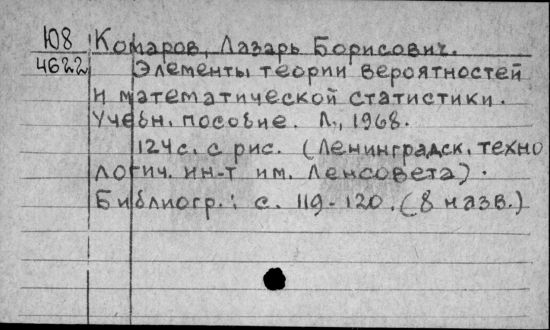 Ю8 Комаров, Лазарь Борисович.
4622 Элементы теории вероятностей
и математической статистики.
Учебн. пособие. Л., 1968.
124 с. с рис. (Ленинградск. техно
логич. ин-т им. Ленсовета).
Библиогр.: с. 119-120. (8 назв.)